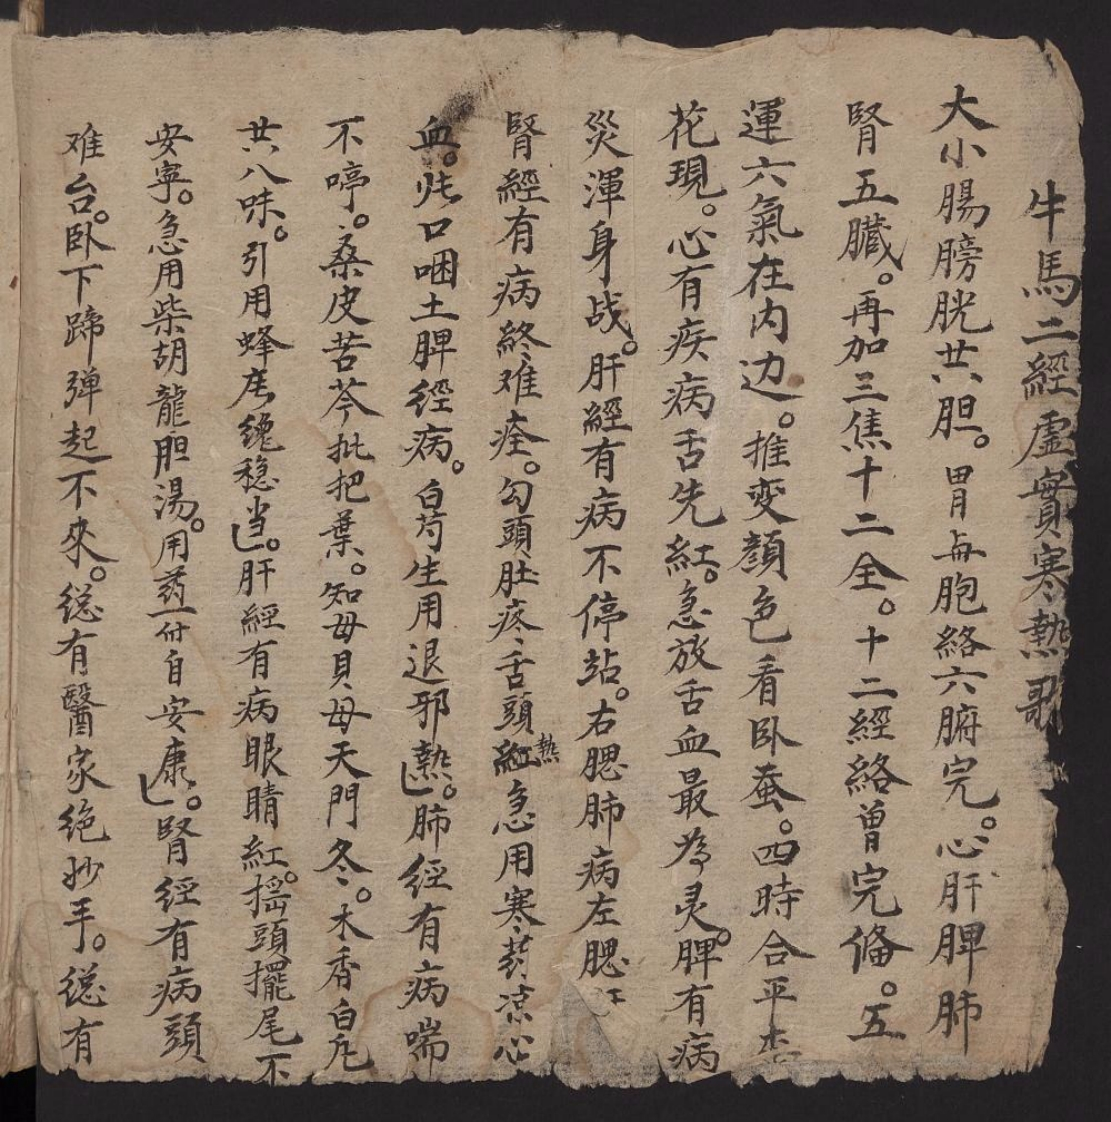 牛馬二經虛實寒熱歌
大小腸膀胱共胆。胃与胞絡六腑完。心肝脾肺
腎五臟。再加三焦十二全。十二經絡曾完俻。五
運六氣在内边。推变顏色看卧蚕。四時合平
花現。心有疾病舌先紅。急放舌血最為灵。脾有病
災渾身战。肝經有病不停站。右腮肺病左腮
腎經有病終难痊。勾頭肚疼舌頭紅熱急用寒药凉心
血。口咽土脾經病。白芍生用退邪熱。肺經有病喘
不啼。桑皮苦芩批把葉。知母貝母天門冬。木香白凡
共八味。引用蜂纔稳当。肝經有病眼睛紅。摇頭擺尾不
安寧。急用柴胡龍胆湯。用药一付自安康。腎經有病頭
难台。卧下蹄弹起不來。總有醫家绝妙手。總有